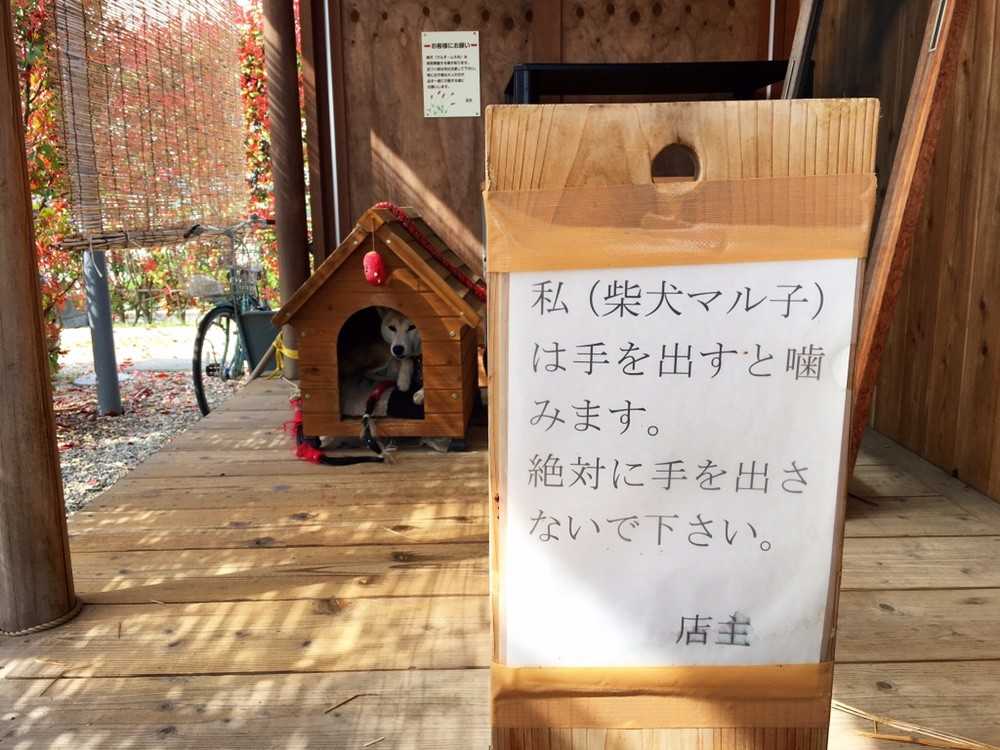 お客様にお願い
私（柴犬マル子）
は手を出すと噛
みます。
絶対に手を出さ
ないで下さい。
店主